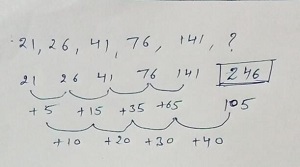 21, 26, 41, 76, 141, ?
21 26 41 76 141 246
+5 +15 +35 +65 105
+10 +20 +30 +40